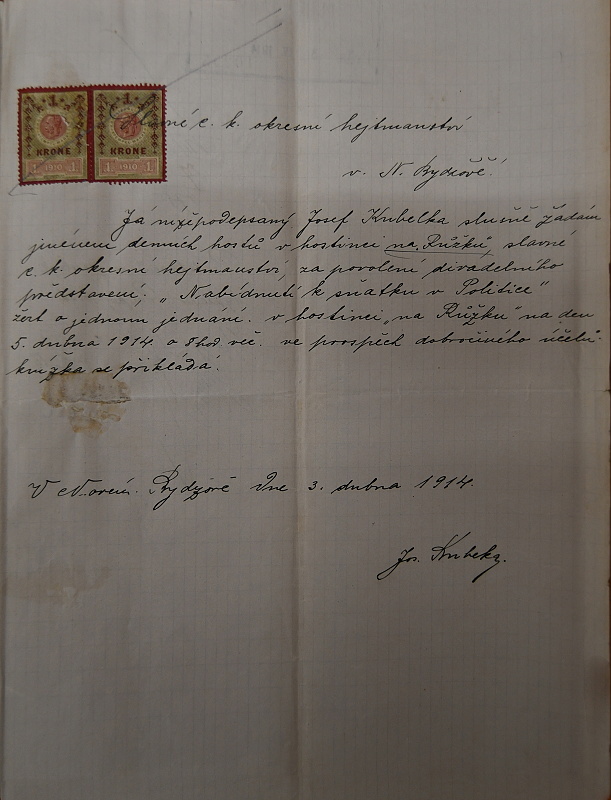 1 1
KRONE KRONE
1 1910 1 1 1910 1
Slavné c. k. okresní hejtmanství
v. N. Bydžově.
Já nížepodepsaný Josef Kubelka slušně žádám
jménem denních hostů v hostinci „na Růžku", slavné
c. k. okresní hejtmanství, za povolení divadelního
představení. „Nabídnutí k sňatku v Politice"
žert o jednom jednání. v hostinci „na Růžku" na den
5. dubna 1914. o 8 hod več. ve prospěch dobročiného účelů.
knížka se přikládá.
V Novém. Bydžově Dne 3. dubna 1914.
Jos. Kubelka.